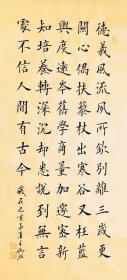 德義風流夙所欽別離三載更
關心偶扶藜杖出寒谷又枉藍
輿度遠岑舊學商量加邃密新
知培養轉深沉却愁說到無言
處不信人間有古今 歲在己亥